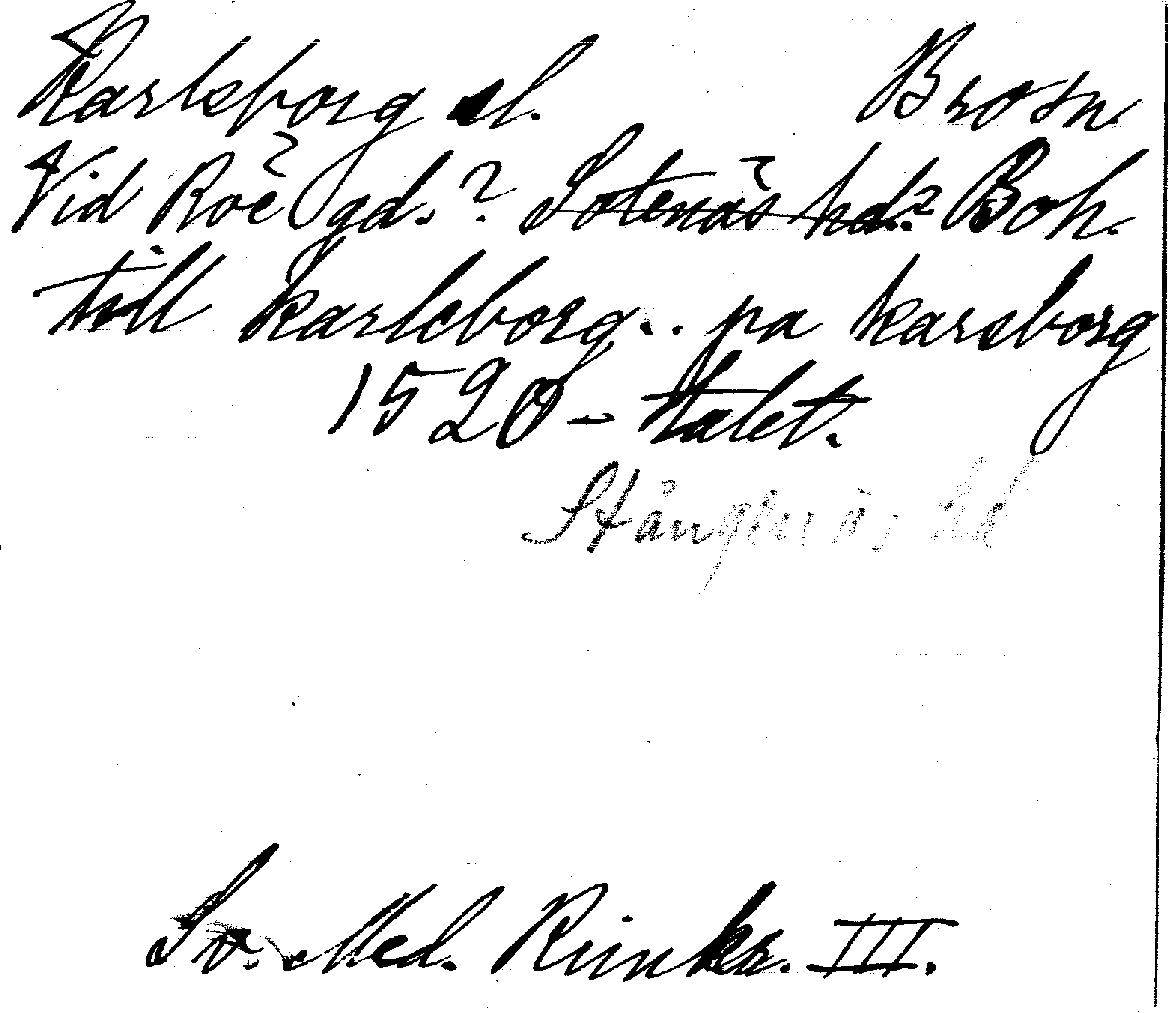 Karlsborg sl. Brosn
Vid Roë gd.? Sotenäs hd.? Boh.
till karleborg.. pa karsborg
1520-talet.
Stångenäs hd
Sv. Med. Rimkr. III.